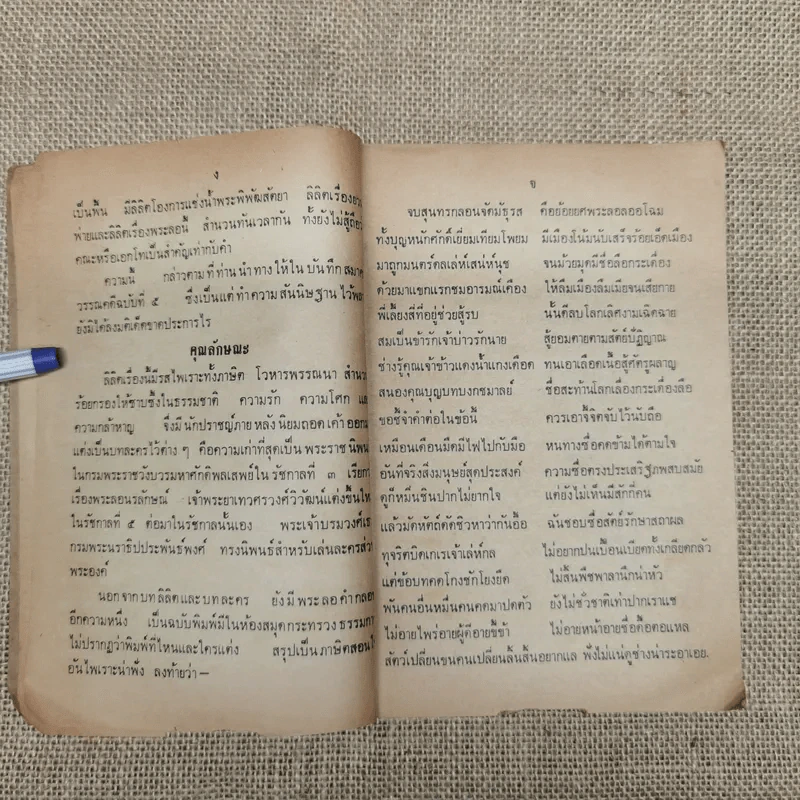 ง
เป็นพื้น มีลิลิตโองการแช่งน้ำพระพิพัฒสัตยา ลิลิตเรื่องยวน
พ่ายและลิลิตเรื่องพระลอนี้ สำนวนทันเวลากัน ทั้งยังไม่สู้ถือ
คณะหรือเอกโทเป็นสำคัญเท่ากับคำ
ความนี้ กล่าวตามที่ท่านนำทางให้ในบันทึกสมาคม
วรรณคดีฉบับที่ ๕ ซึ่งเป็นแต่ทำความสันนิษฐานไว้
ยังมิได้ลงมติเด็ดขาดประการไร
คุณลักษณะ
ลิลิตเรื่องนี้มีรสไพเราะทั้งภาษิต โวหารพรรณนา สำนวน
ร้อยกรองให้ซาบซึ้งในธรรมชาติ ความรัก ความโศก
ความกล้าหาญ จึงมีนักปราชญ์ภายหลังนิยมถอดเค้าออก
แต่งเป็นบทละครไว้ต่าง ๆ คือความเก่าที่สุดเป็นพระราชนิพนธ์
ในกรมพระราชวังบวรมหาศักดิพลเสพย์ในรัชกาลที่ ๓ เรียก
เรื่องพระลอนรลักษณ์ เจ้าพระยาเทวศรวงศ์วิวัฒน์แต่งขึ้นใหม่
ในรัชกาลที่ ๕ ต่อมาในรัชกาลนั้นเอง พระเจ้าบรมวงศ์เธอ
กรมพระนราธิปประพันธ์พงศ์ ทรงนิพนธ์สำหรับเล่นละครส่วน
พระองค์
นอกจากบทลิลิตและบทละคร ยังมีพระลอคำกลอน
อีกความหนึ่ง เป็นฉบับพิมพ์มีในห้องสมุดกระทรวงธรรมการ
ไม่ปรากฏว่าพิมพ์ที่ไหนและใครแต่ง สรุปเป็นภาษิตสอนใจ
อันไพเราะน่าฟัง ลงท้ายว่า —
จ
จบสุนทรกลอนจัดมัธุรส คือย้อยยศพระลอลออโฉม
ทั้งบุญหนักศักดิ์เยี่ยมเทียมโพยม มีเมืองโน้มนับเสร็จร้อยเอ็ดเมือง
มาถูกมนตร์ดลเล่ห์เสน่ห์นุช จนม้วยมุดมีชื่อลือกระเดื่อง
ด้วยมาแขกแรกชมอารมณ์เคือง ให้ลืมเมืองลืมเมียจนเสียกาย
พี่เลี้ยงสี่ที่อยู่ช่วยสู้รบ นั้นดีลบโลกเลิศงามเฉิดฉาย
สมเป็นข้ารักเจ้าบ่าวรักนาย สู้ยอมตายตามสัตย์ปฏิญาณ
ช่างรู้คุณเจ้าข้าวแดงน้ำแกงเดือด ทนเอาเลือดเนื้อสู้ศัตรูผลาญ
สนองคุณบุญบทบงกชมาลย์ ชื่อสะท้านโลกเลื่องกระเดื่องลือ
ขอชี้จำคำต่อในข้อนี้ ควรเอาจี้จิตจับไว้นับถือ
เหมือนเดือนมืดมีไฟไปกับมือ หนทางซื่อคดข้ามได้ตามใจ
อันที่จริงสิ่งมนุษย์สุดประสงค์ ความซื่อตรงประเสริฐภพสบสมัย
ดูกี่หมื่นชื่นปากไม่ยากใจ แต่ยังไม่เห็นมีสักกี่คน
แล้วมัดหัตถ์ดัดชิวหาว่ากันอื้อ ฉันชอบซื่อสัตย์รักษาสถาผล
ทุจริตบิดเกเรเจ้าเล่ห์กล ไม่อยากปนเปื้อนเบียดทั้งเกลียดกลัว
แต่ข้อบทคดโกงชักโยงยืด ไม่สิ้นพืชพาลานึกน่าหัว
พันคนอื่นหมื่นคนคดมาปดตัว ยังไม่ชั่วชาติเท่าปากเราแช
ไม่อายไพร่อายผู้ดีอายขี้ข้า ไม่อายหน้าอายชื่อคือตอแหล
สัตว์เปลี่ยนขนคนเปลี่ยนลิ้นสิ้นอยากแล ฟังไม่แน่ดูช่างน่าระอาเอย.